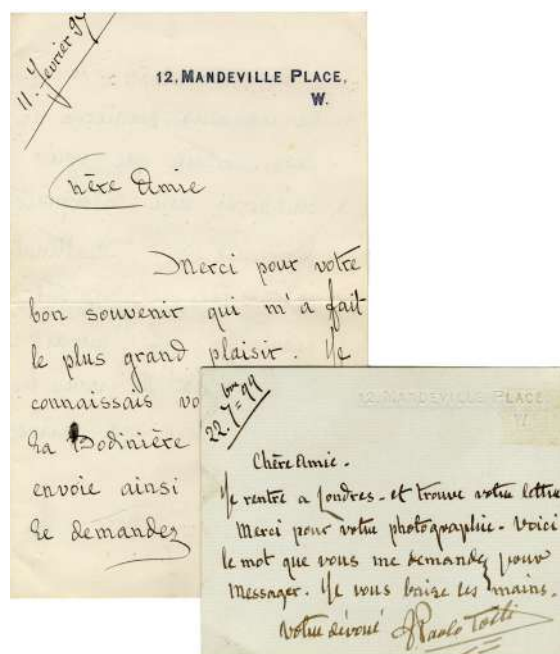 11. Fevrier 97
12. MANDEVILLE PLACE,
W.
Chère Amie
Merci pour votre
bon souvenir qui m'a fait
le plus grand plaisir. Je
connaissais vo
La Bodinière
envoie ainsi
le demandez
12. MANDEVILLE PLACE,
W.
22. 7bre = 99
Chère Amie.
Je rentre a Londres - et trouve votre lettre
Merci pour votre photographie - Voici
le mot que vous me demandez pour
Messager. Je vous baise les mains.
Votre dévoué F Paolo Tosti